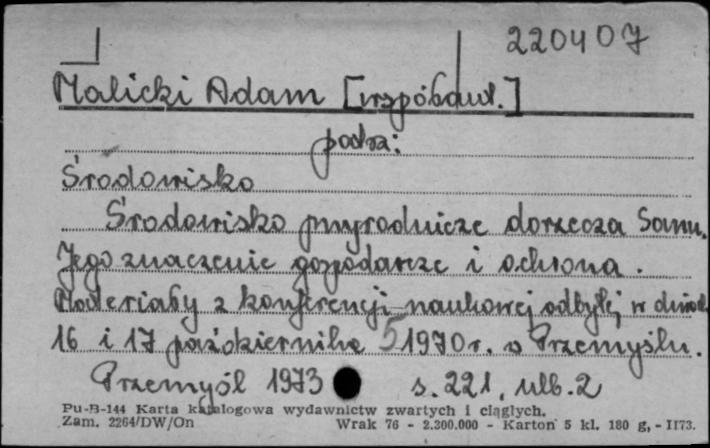 220407
Malicki Adam [współaut.]
patrz:
Środowisko
Środowisko przyrodnicze dorzecza Sanu.
Jego znaczenie gospodarcze i ochrona.
Materiały z konferencji naukowej odbytej w dniach
16 i 17 październike 1970 r. w Przemyślu.
Przemyśl 1973 s. 221, nlb. 2
Pu-B-144 Karta katalogowa wydawnictw zwartych i ciągłych.
Zam. 2264/DW/On Wrak 76 - 2.300.000 - Karton 5 kl. 180 g, - II73.